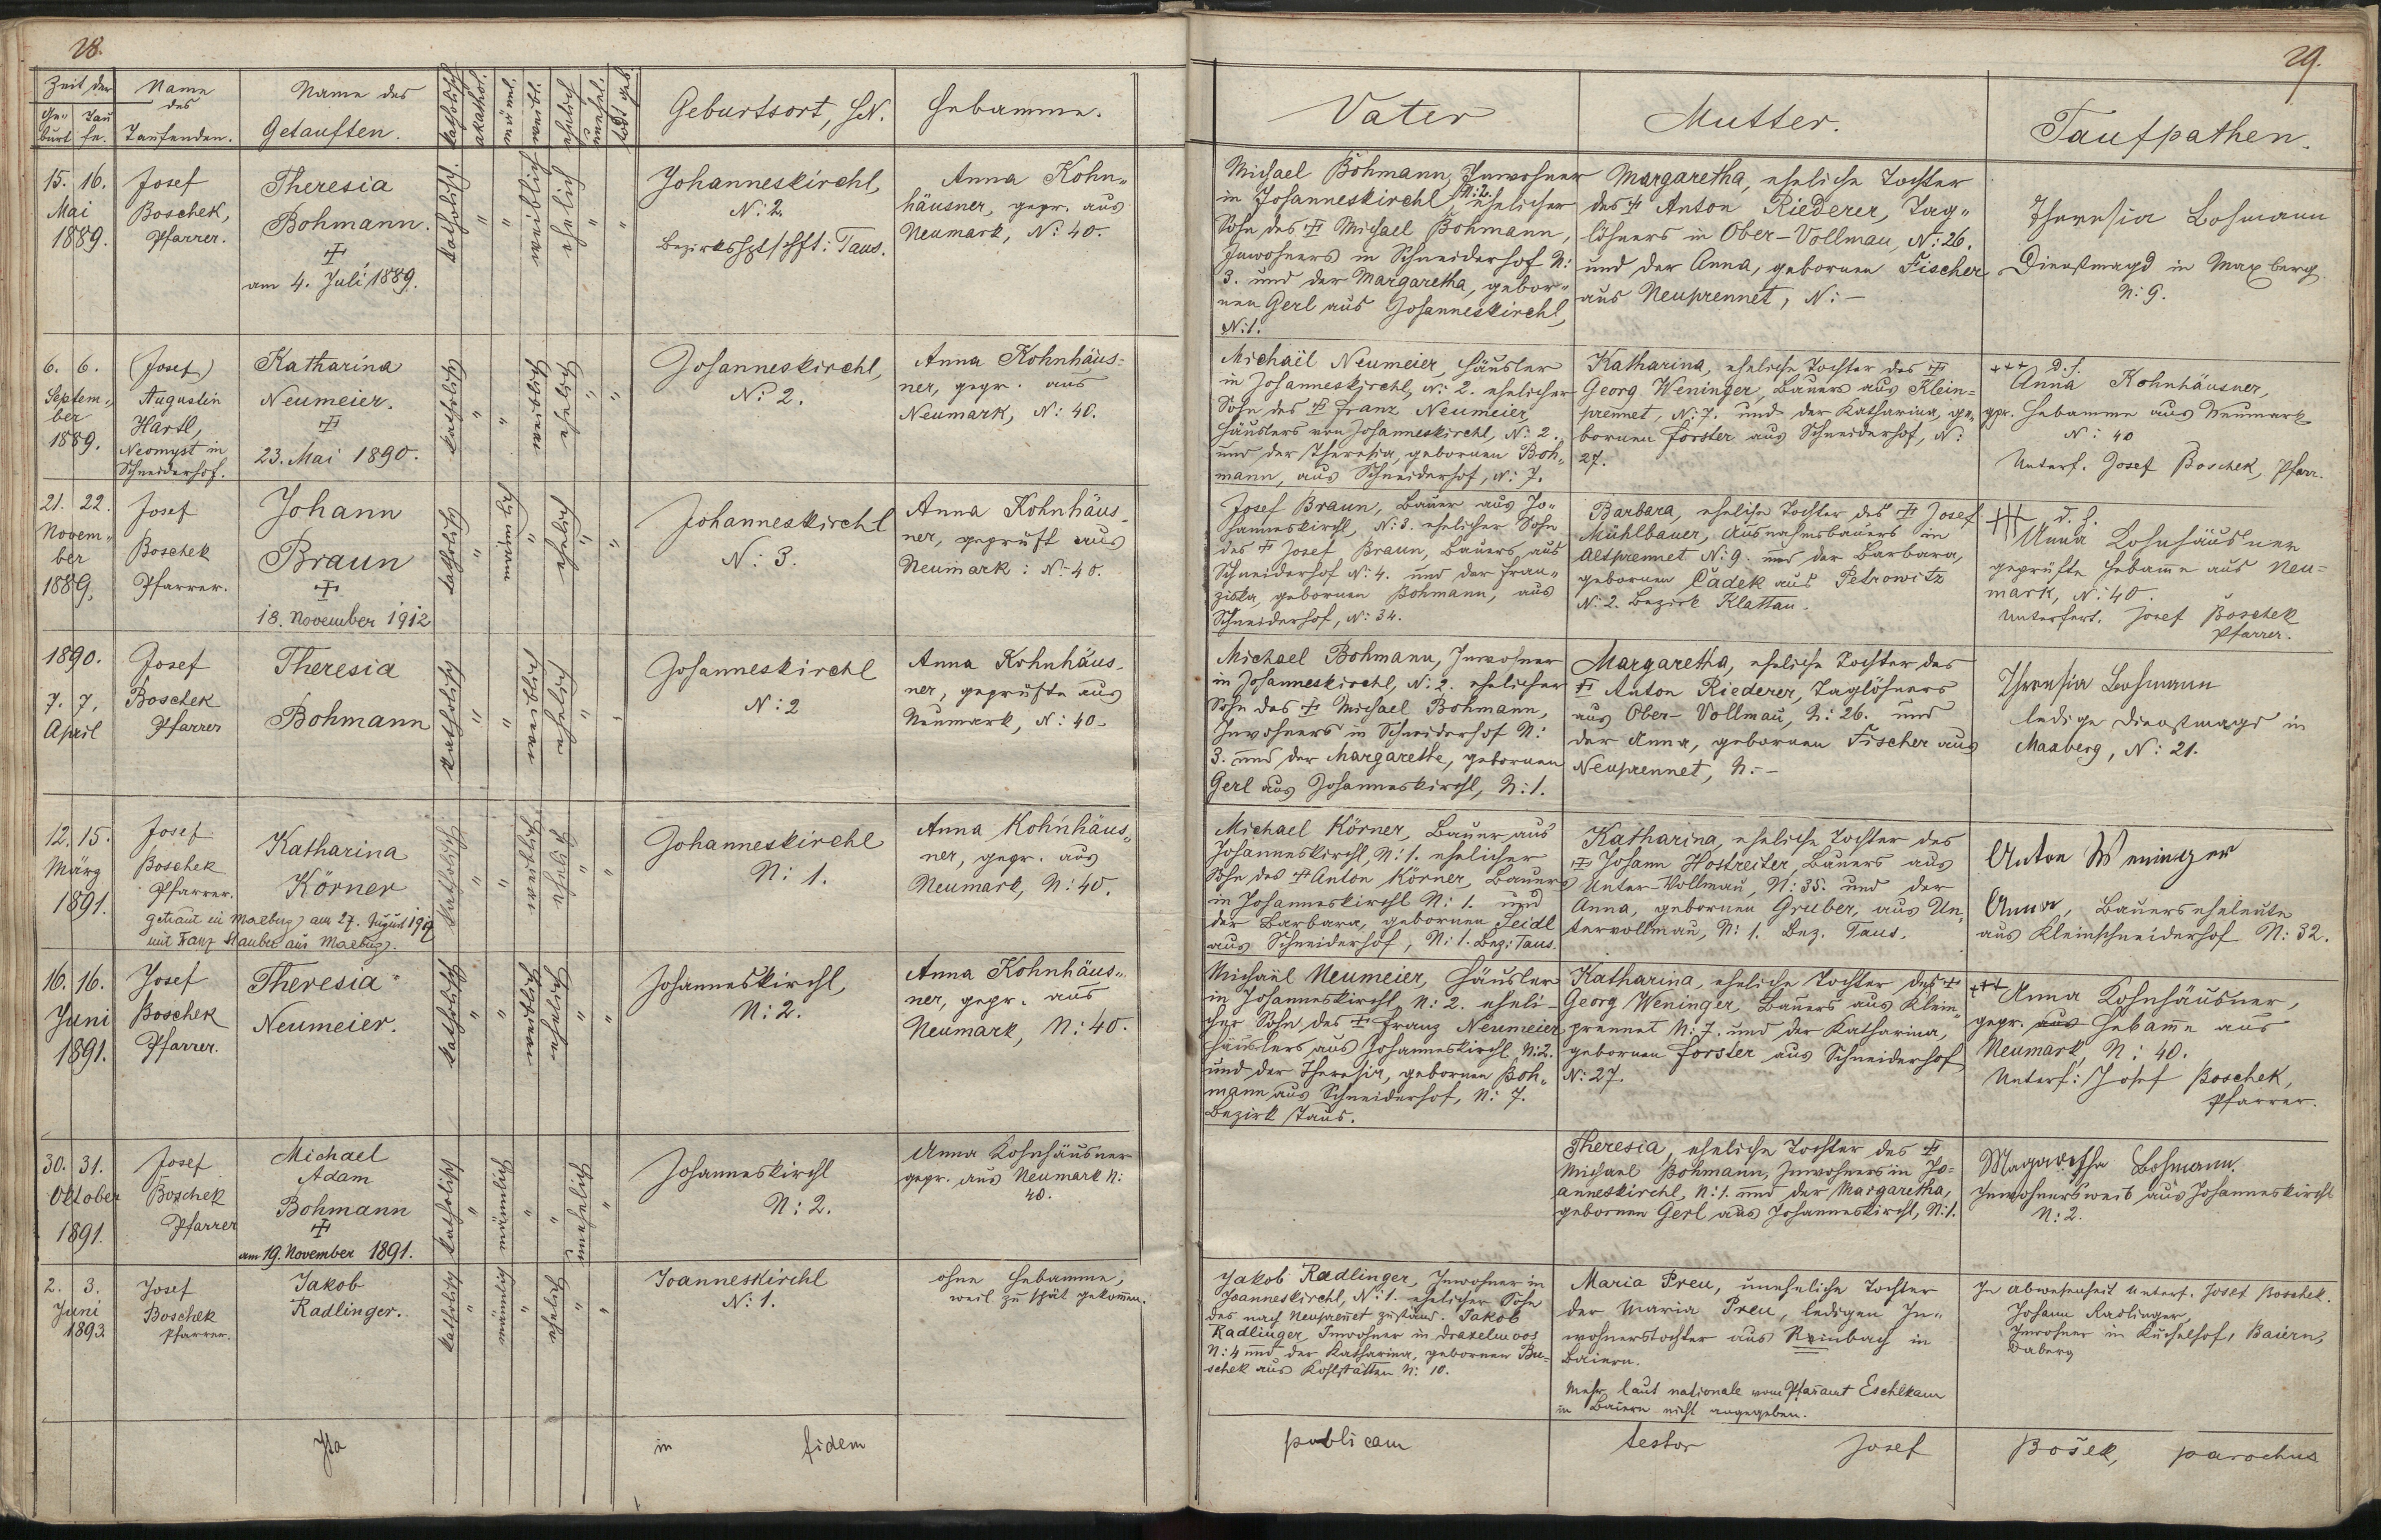 28.
Zeit der
Ge- burt
Tau fe.
Name des Taufenden.
Name des Getauften.
katholisch
akathol.
männ
weibl.
ehelich
unehel.
todt geb.
Geburtsort, HN.
Hebamme.
29.
Vater
Mutter.
Taufpathen.
15. 16.
Mai
1889.
Josef
Boschek,
Pfarrer.
Theresia
Bohmann.
am 4. Juli 1889.
katholisch.
"
"
weiblichen
ehelich
"
"
Johanneskirchl,
N: 2.
Bezirkshptschft: Taus.
Anna Kohn„
häusner, gepr. aus
Neumark, N: 40.
Michael Bohmann, Inwohner
in Johanneskirchl, N: 2. ehelicher
Sohn des Michael Bohmann,
Inwohners in Schneiderhof N:
3. und der Margaretha, gebor„
nen Gerl aus Johanneskirchl,
N: 1.
Margaretha, eheliche Tochter
des Anton Riederer, Tag„
löhners in Ober-Vollmau, N: 26.
und der Anna, gebornen Fischer
aus Neuprennet, N: -
Theresia Bohmann
Dienstmagd in Maxberg
N: 9.
6. 6.
Septem„
ber
1889.
(Josef)
Augustin
Hartl,
Neomyst in
Schneiderhof.
Katharina
Neumeier.
23. Mai 1890.
katholisch
"
"
"
"
Johanneskirchl,
N: 2.
Anna Kohnhäus=
ner, gepr. aus
Neumark, N: 40.
Michaël Neumeier, Häusler
in Johanneskirchl, N: 2. ehelicher
Sohn des Franz Neumeier,
Häuslers von Johanneskirchl, N: 2.
und der Theresia, gebornen Boh„
mann, aus Schneiderhof, N: 7.
Katharina, eheliche Tochter des
Georg Weninger, Bauers aus Klein=
prennet, N: 7. und der Katharina, ge„
bornen Forster aus Schneiderhof, N:
27.
+++ d. h.
Anna Kohnhäusner,
gpr. Hebamme aus Neumark
N: 40
Unterf. Josef Boschek, Pfarr.
21. 22.
Novem„
ber
1889.
Josef
Boschek
Pfarrer.
Johann
Braun
18. November 1912
katholisch
"
"
"
"
Johanneskirchl
N: 3.
Anna Kohnhäus„
ner, geprüft aus
Neumark: N: 40.
Josef Braun, Bauer aus Jo„
hanneskirchl, N: 3. ehelicher Sohn
des Josef Braun, Bauers aus
Schneiderhof N: 4. und der Fran„
ziska, gebornen Bohmann, aus
Schneiderhof, N: 34.
Barbara, eheliche Tochter des Josef
Mühlbauer, Ausnahmsbauers in
Altprennet N: 9. und der Barbara,
gebornen Čadek aus Petrowitz
N: 2. Bezirk Klattau.
+++ d. h.
Anna Kohnhäusner
geprüfte Hebamme aus Neu=
mark, N: 40.
Unterfert. Josef Boschek
Pfarrer.
1890.
7. 7.
April
Josef
Boschek
Pfarrer
Theresia
Bohmann
katholisch
"
"
"
"
Johanneskirchl
N: 2
Anna Kohnhäus„
ner, geprüfte aus
Neumark, N: 40.
Michael Bohmann, Inwohner
in Johanneskirchl, N: 2. ehelicher
Sohn des Michael Bohmann,
Inwohners in Schneiderhof N:
3. und der Margarethe, gebornen
Gerl aus Johanneskirchl, N: 1.
Margaretha, eheliche Tochter des
Anton Riederer, Taglöhners
aus Ober-Vollmau, N: 26. und
der Anna, gebornen Fischer aus
Neuprennet, N: -
Theresia Bohmann
ledige Dienstmagd in
Maxberg, N: 21.
12. 15.
März
1891.
Josef
Boschek
Pfarrer.
Katharina
Körner
getraut in Maxberg am 27. August 1917
mit Franz Stauber aus Maxberg.
katholisch
"
"
"
"
Johanneskirchl
N: 1.
Anna Kohnhäus„
ner, gepr. aus
Neumark, N: 40.
Michael Körner, Bauer aus
Johanneskirchl, N: 1. ehelicher
Sohn des Anton Körner, Bauers
in Johanneskirchl N: 1. und
der Barbara, gebornen Seidl
aus Schneiderhof, N: 1. Bez: Taus.
Katharina, eheliche Tochter des
Johann Hostreiter, Bauers aus
Unter Vollmau, N: 35. und der
Anna, gebornen Gruber, aus Un„
tervollmau, N: 1. Bez. Taus.
Anton Weninger
Anna, Bauerseheleute
aus Kleinschneiderhof N: 32.
16. 16.
Juni
1891.
Josef
Boschek
Pfarrer.
Theresia
Neumeier.
katholisch
"
"
"
"
Johanneskirchl,
N: 2.
Anna Kohnhäus„
ner, gepr. aus
Neumark, N: 40.
Michaël Neumeier, Häusler
in Johanneskirchl, N: 2. eheli-
cher Sohn des Franz Neumeier
Häuslers aus Johanneskirchl N: 2.
und der Theresia, gebornen Boh„
mann aus Schneiderhof, N: 7.
Bezirk Taus.
Katharina, eheliche Tochter des
Georg Weninger, Bauers aus Klein„
prennet N: 7. und der Katharina,
gebornen Forster aus Schneiderhof
N: 27.
+++ Anna Kohnhäusner,
gepr. aus Hebamme aus
Neumark, N: 40.
Unterf: Josef Boschek,
Pfarrer.
30. 31.
Oktober
1891.
Josef
Boschek
Pfarrer
Michael
Adam
Bohmann
am 19. November 1891.
katholisch
"
"
"
unehelich
"
Johanneskirchl
N: 2.
Anna Kohnhäusner
gepr. aus Neumark N:
40.
Theresia, eheliche Tochter des
Michael Bohmann, Inwohners in Jo=
anneskirchl, N: 1. und der Margaretha,
gebornen Gerl aus Johanneskirchl, N: 1.
Magaretha Bohmann.
Inwohnersweib aus Johanneskirchl
N: 2.
2. 3.
Juni
1893.
Josef
Boschek
Pfarrer.
Jakob
Radlinger.
katholisch
"
"
"
"
Joanneskirchl
N: 1.
ohne Hebamme,
weil zu spät gekommen.
Jakob Radlinger, Inwohner in
Joanneskirchl, N: 1. ehelicher Sohn
des nach Neuprennet zuständ. Jakob
Radlinger, Inwohner in Draxelmoos
N: 4 und der Katharina, gebornen Bu=
schek aus Kohlstätten N: 10.
Maria Preu, uneheliche Tochter
der Maria Preu, ledigen In„
wohnerstochter aus Rimbach in
Baiern.
Mehr laut nationale vom Pfarramt Eschlkam
in Baiern nicht angegeben.
In Abwesenheit unterf. Josef Boschek.
Johann Radlinger
Inwohner in Kuchelhof, Baiern,
Daberg
Ita in fidem publicam testor Josef Bošek, parochus